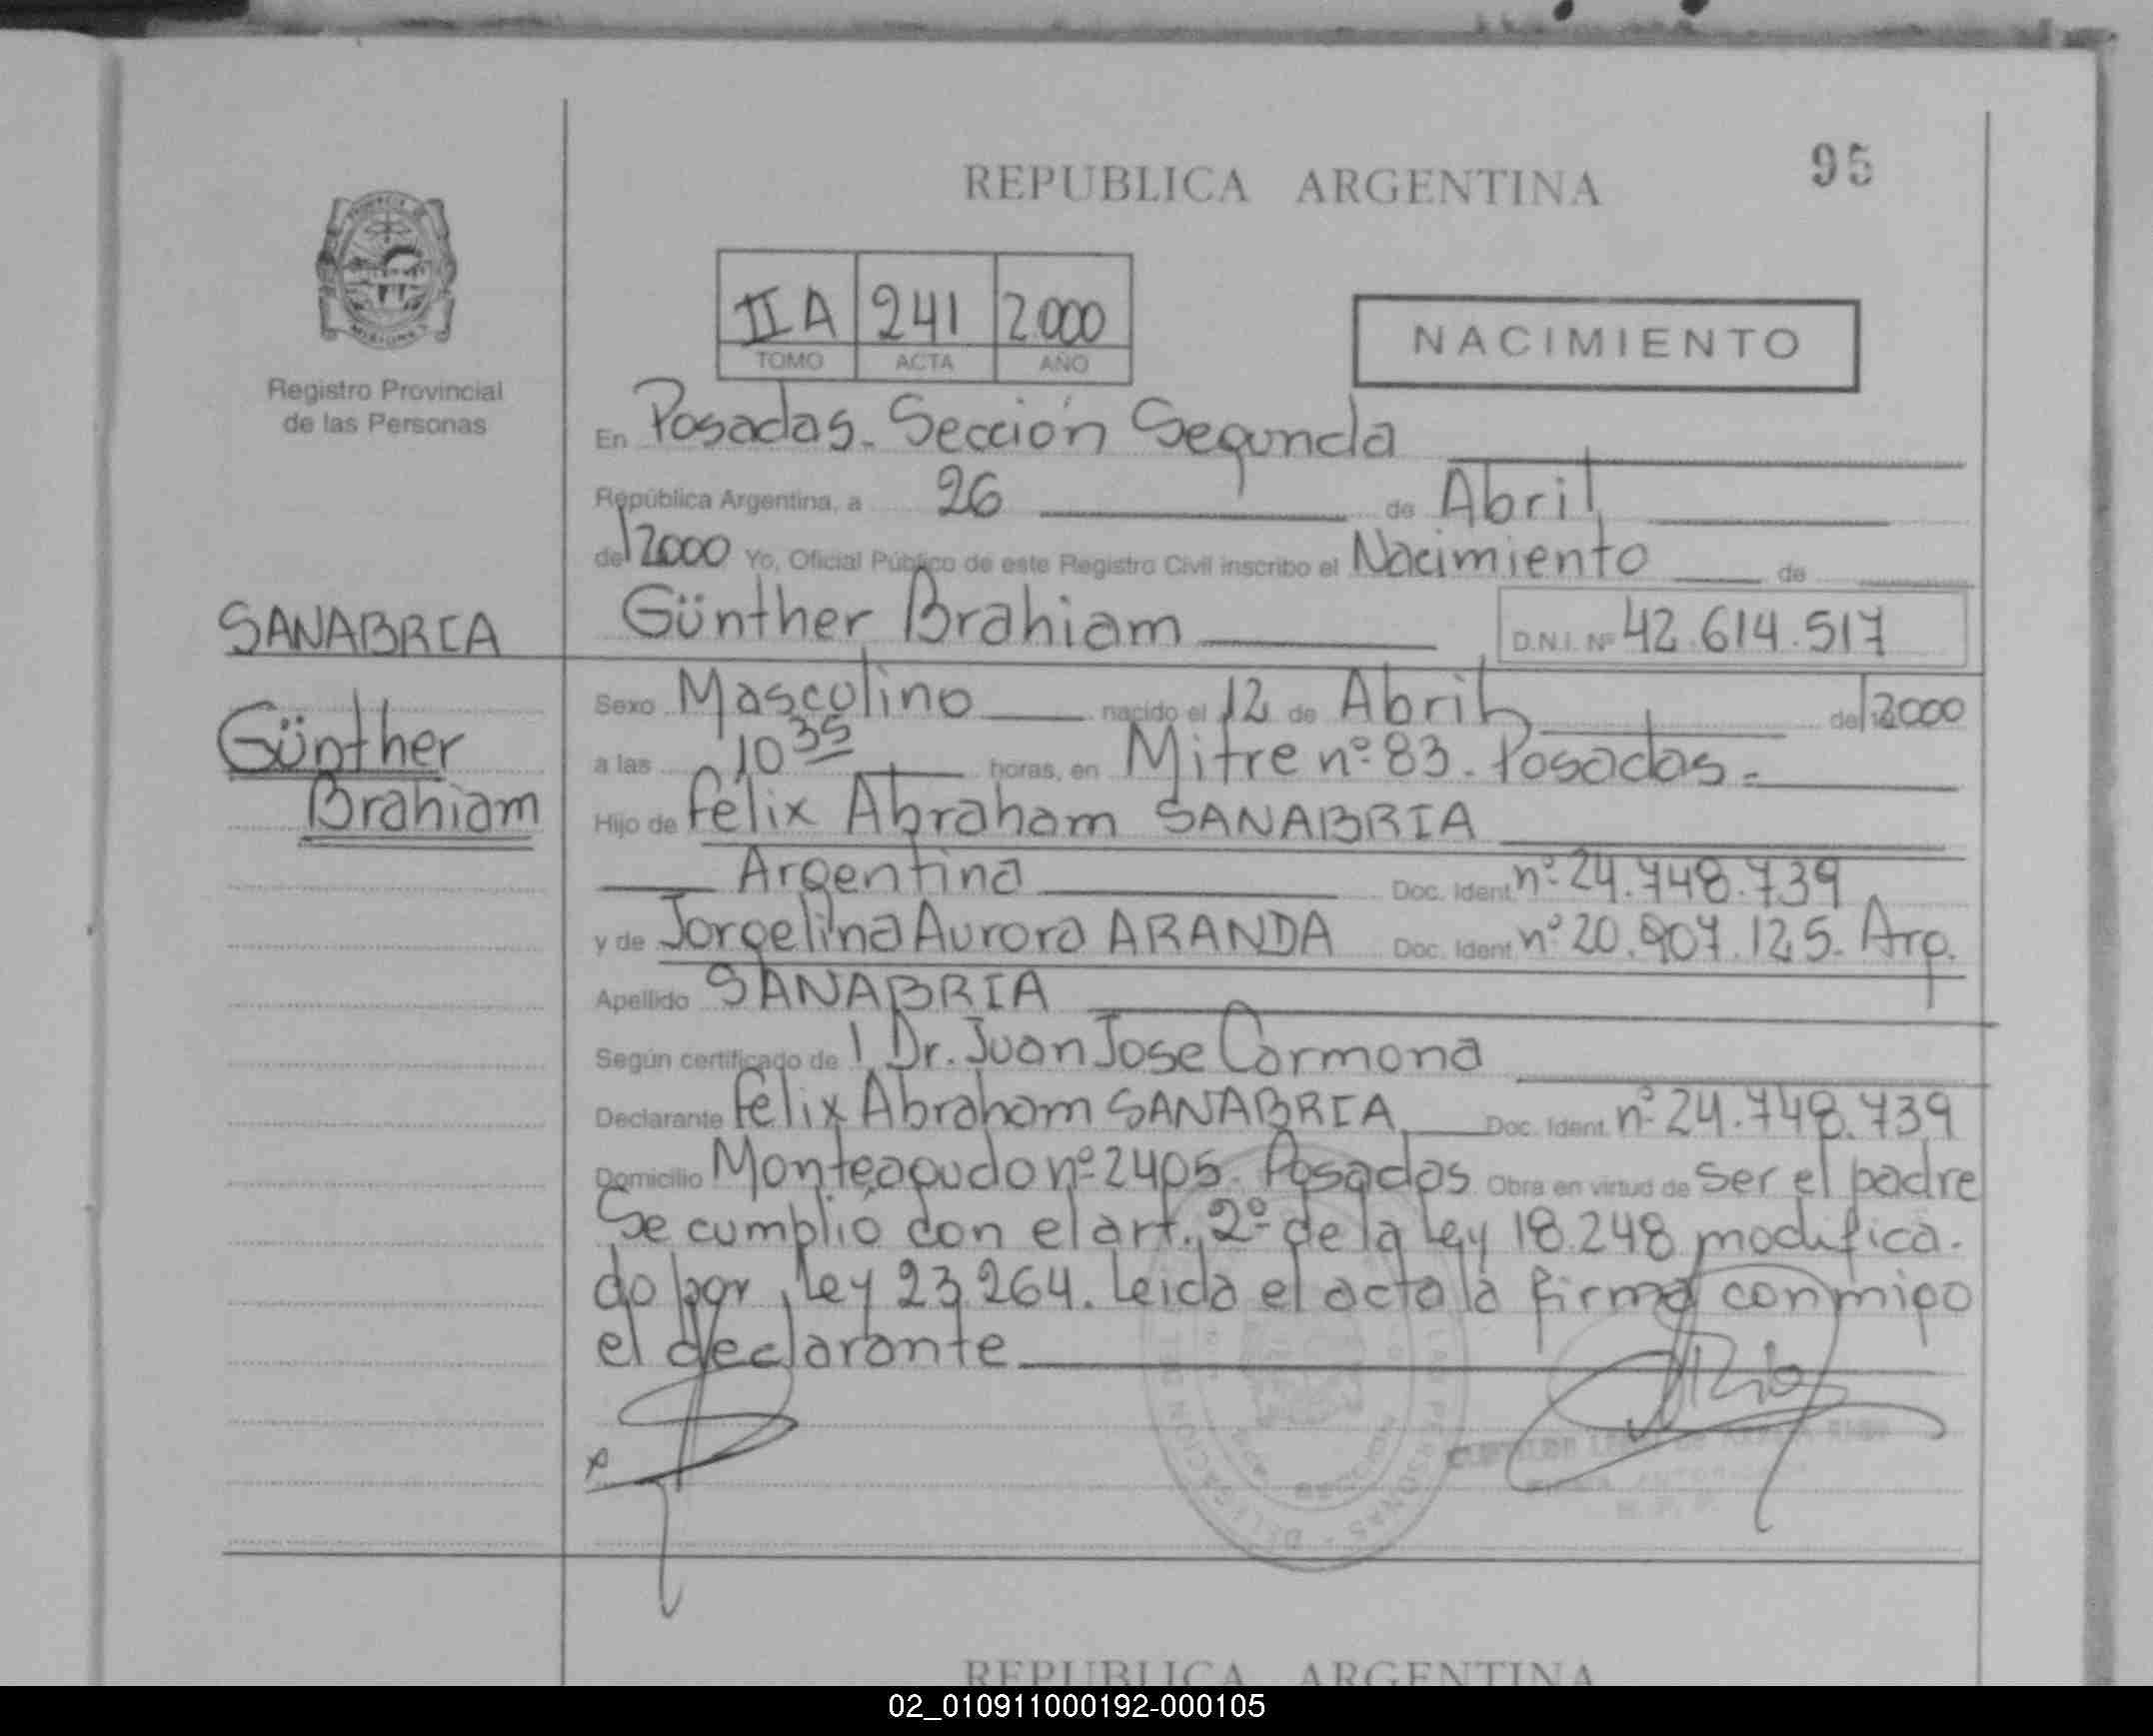 95
REPUBLICA ARGENTINA
IIA 241 2.000
TOMO ACTA AÑO
NACIMIENTO
Registro Provincial
de las Personas
En Posadas. Sección Segunda
República Argentina, a 26 de Abril
del 2000 Yo, Oficial Público de este Registro Civil inscribo el Nacimiento de
SANABRIA
Günther Brahiam D.N.I. Nº 42.614.517
Günther
Brahiam
Sexo Masculino nacido el 12 de Abril del 2000
a las 10 35 horas, en Mitre nº 83. Posadas.
Hijo de Félix Abraham SANABRIA
Argentina Doc. Ident. nº 24.748.739
y de Jorgelina Aurora ARANDA Doc. Ident. nº 20.907.125. Arg.
Apellido SANABRIA
Según certificado de l Dr. Juan Jose Carmona
Declarante Félix Abraham SANABRIA Doc. Ident. nº 24.748.739
Domicilio Monteagudo nº 2405. Posadas Obra en virtud de ser el padre
Se cumplió con el art. 2º de la Ley 18.248 modifica-
do por Ley 23.264. Leida el acta la firma conmigo
el declarante
REPUBLICA ARGENTINA
02_010911000192-000105